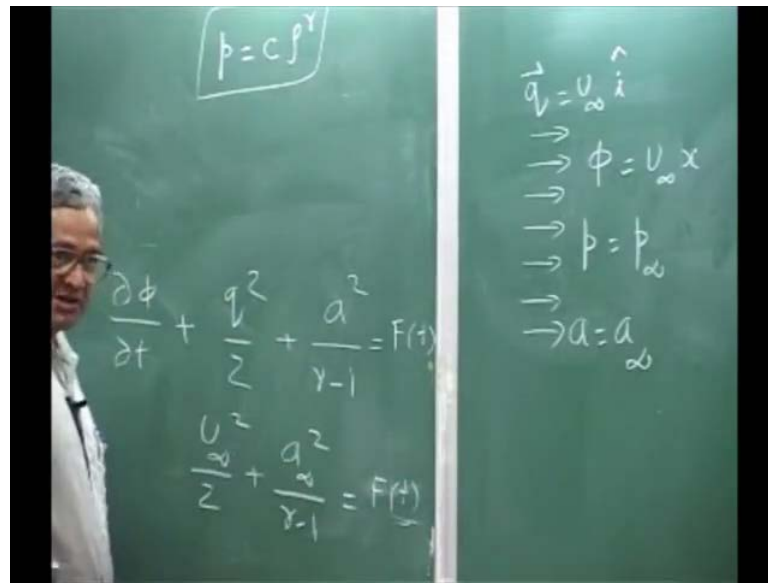 p = c ρ^γ
∂φ/∂t + q²/2 + a²/(γ-1) = F(t)
U∞²/2 + a∞²/(γ-1) = F(t)
q⃗ = U∞ î
→
→ φ = U∞ x
→
→ p = p∞
→
→
→ a = a∞